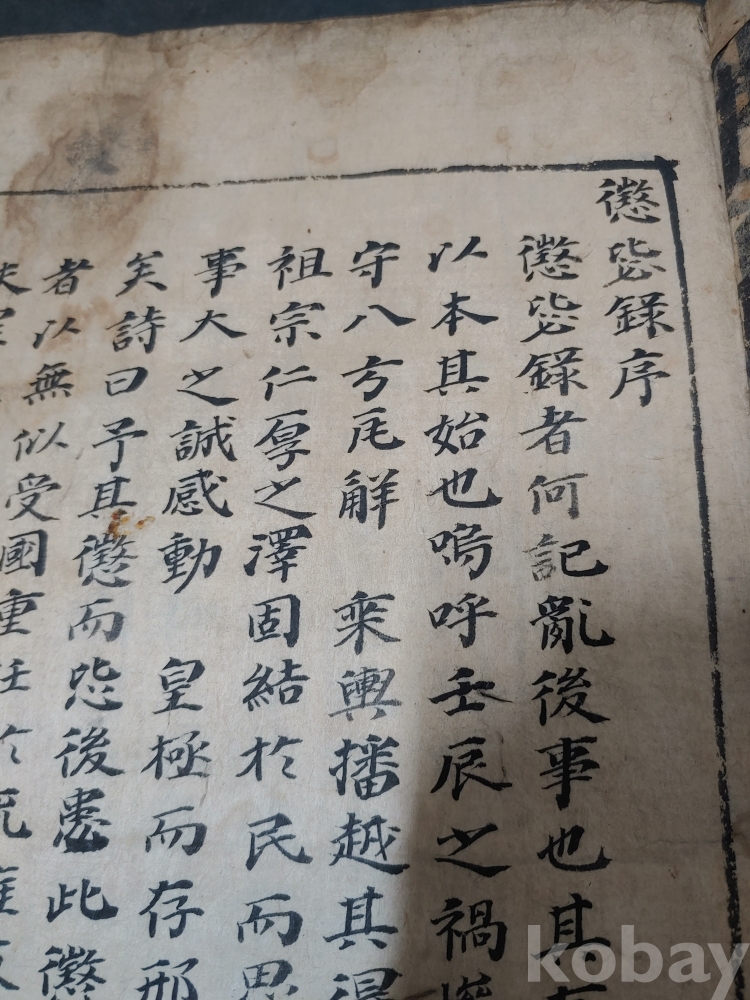 懲毖錄序
懲毖錄者何記亂後事也其
以本其始也嗚呼壬辰之禍
守八方瓦解 乘輿播越其得
祖宗仁厚之澤固結於民而思
事大之誠感動 皇極而存邢
矣詩曰予其懲而毖後患此懲
者以無似受國重任於
kobay